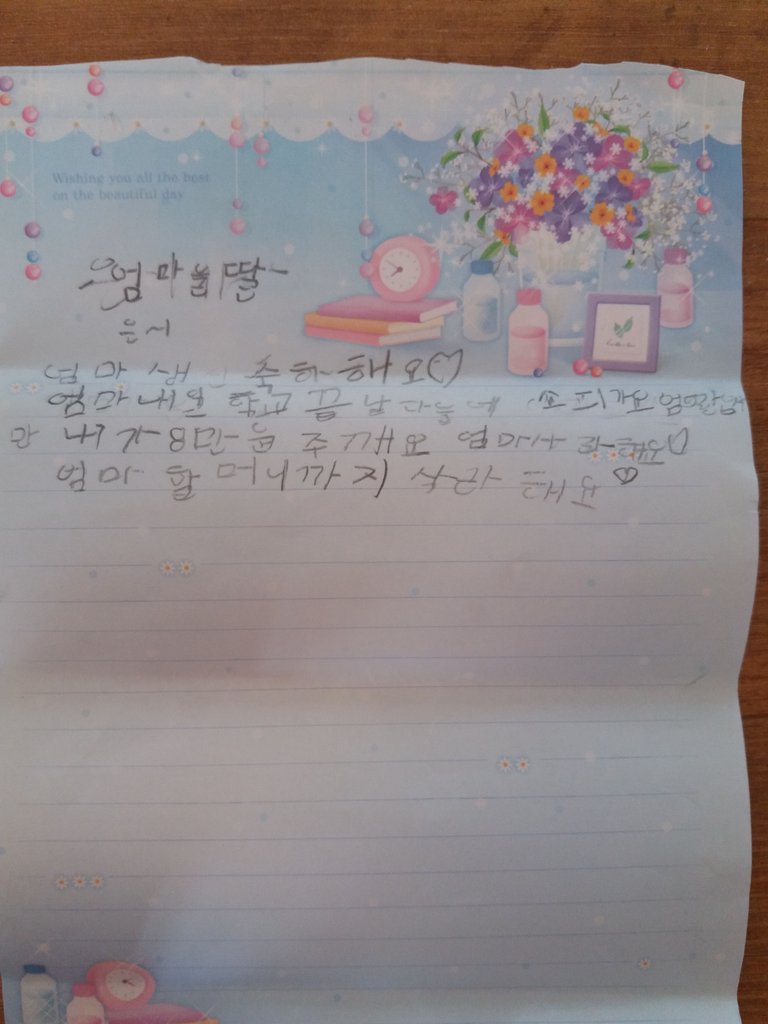 Wishing you all the best
on the beautiful day
엄마 딸
은서
엄마 생 축하해요♡
엄마 내일 학교 끝날 다음에 쇼피가요 엄마랑
만 내가 8만은 주가게요 엄마사라해요♡
엄마 할머니까지 사라해요♡